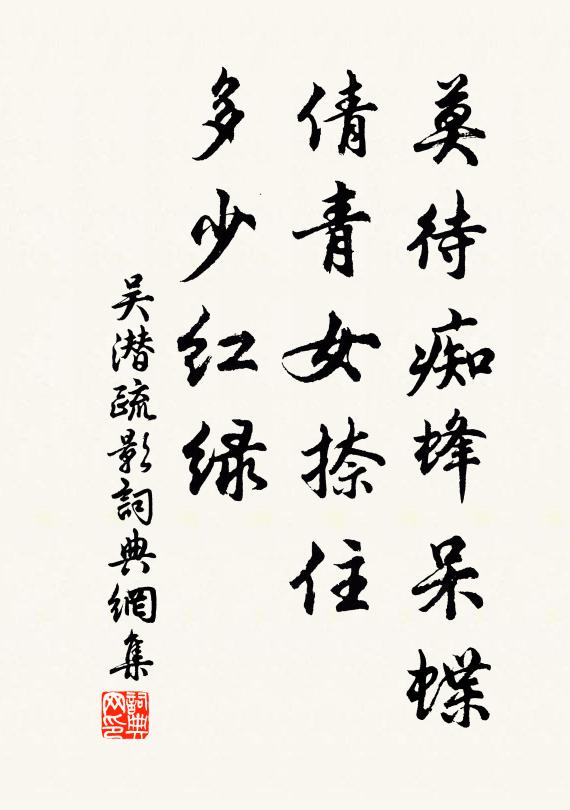 莫待痴蜂呆蝶
倩青女捺住
多少红绿
吴潜疏影詞典網集
詞典网印